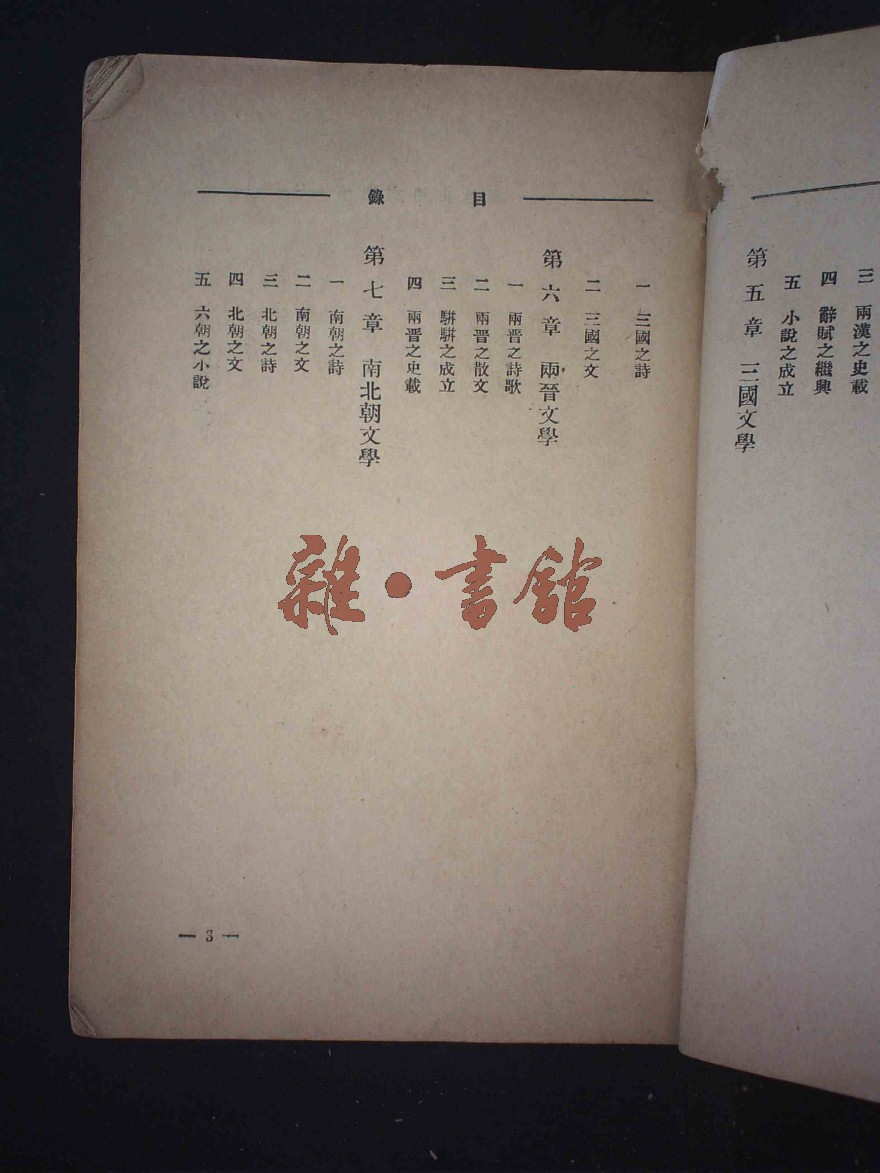 三 兩漢之史載
四 辭賦之繼興
五 小說之成立
第五章 三國文學
目錄
一 三國之詩
二 三國之文
第六章 兩晉文學
一 兩晉之詩歌
二 兩晉之散文
三 駢駢之成立
四 兩晉之史載
第七章 南北朝文學
一 南朝之詩
二 南朝之文
三 北朝之詩
四 北朝之文
五 六朝之小說
— 3 —
雜·書館